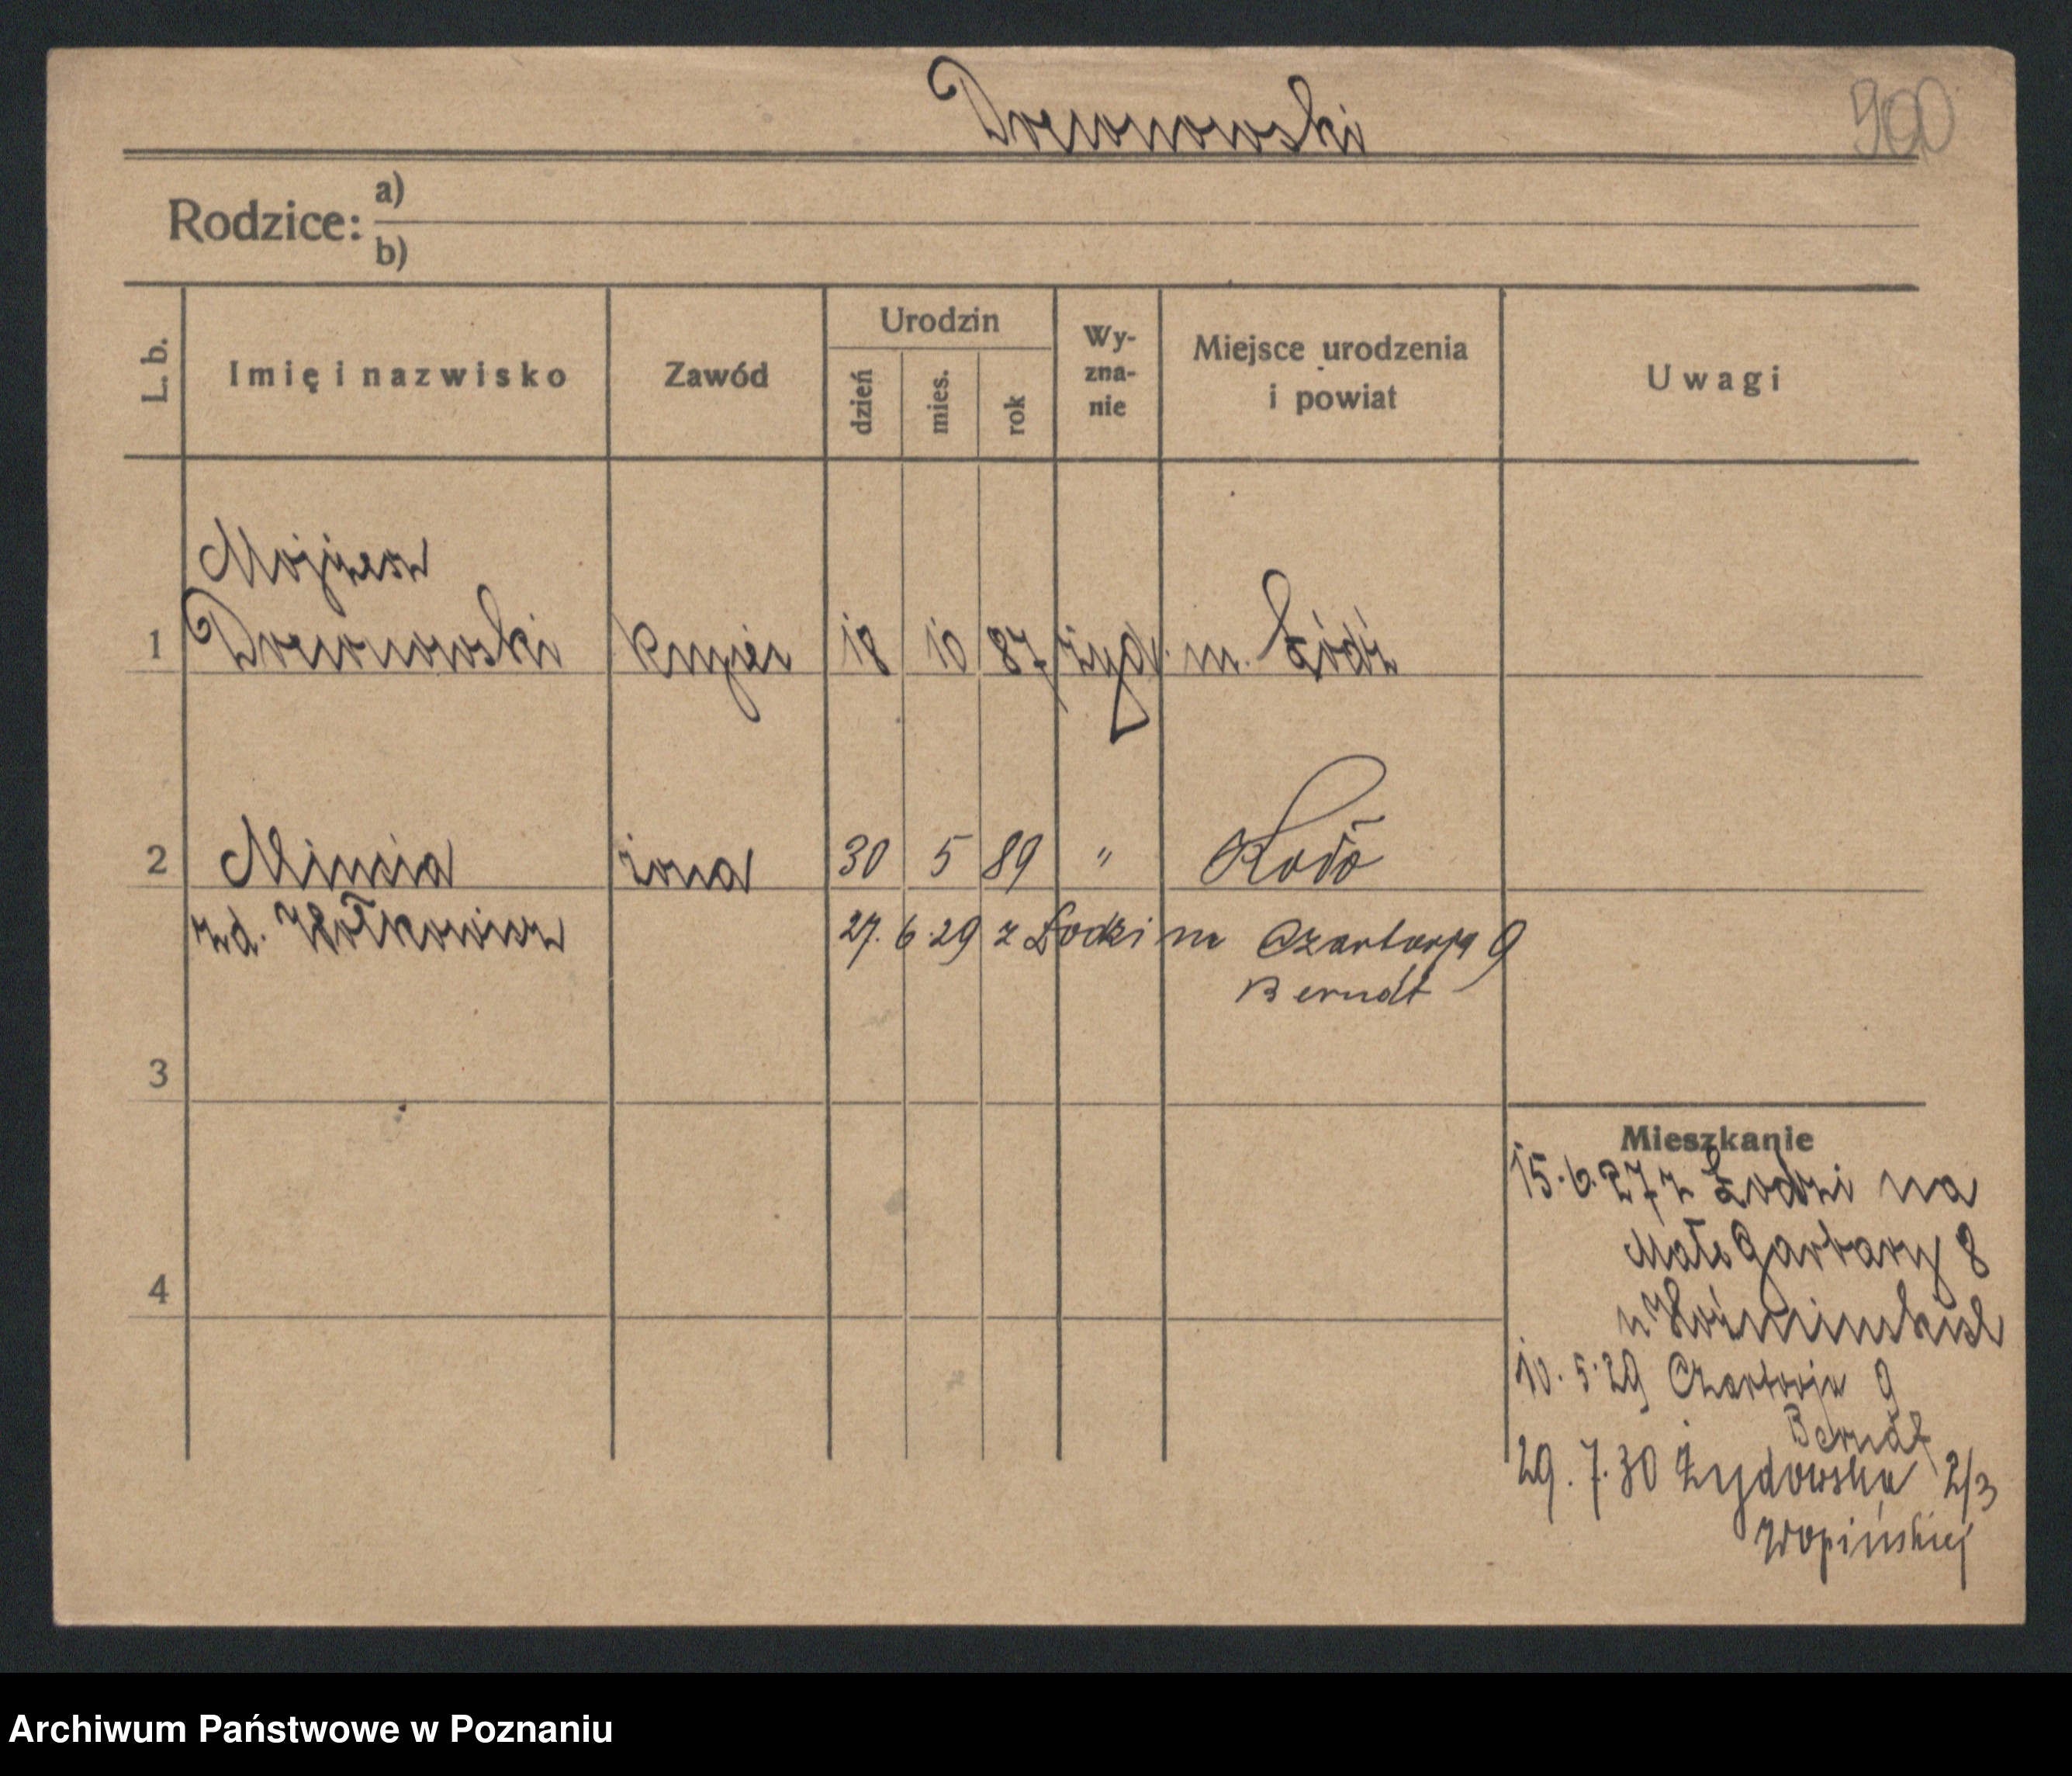 Drewnowski
900
Rodzice: a)
b)
L. b.
Imię i nazwisko
Zawód
Urodzin
dzień mies. rok
Wy-
zna-
nie
Miejsce urodzenia
i powiat
Uwagi
Mojżesz
1 Drewnowski kupiec 18 10 87 żyd. m. Łódź
2 żona 30 5 89 " Koło
zd. Wołkowicz 27. 6 29 z Łodzi na Czartorja 9
Berndt
3
4
Mieszkanie
15.6.27 z Łodzi na
Małe Garbary 8
u
10. 5. 29 Czartorja 9
Berndt
29. 7. 30 Żydowska 2/3
Wopińskiej
Archiwum Państwowe w Poznaniu